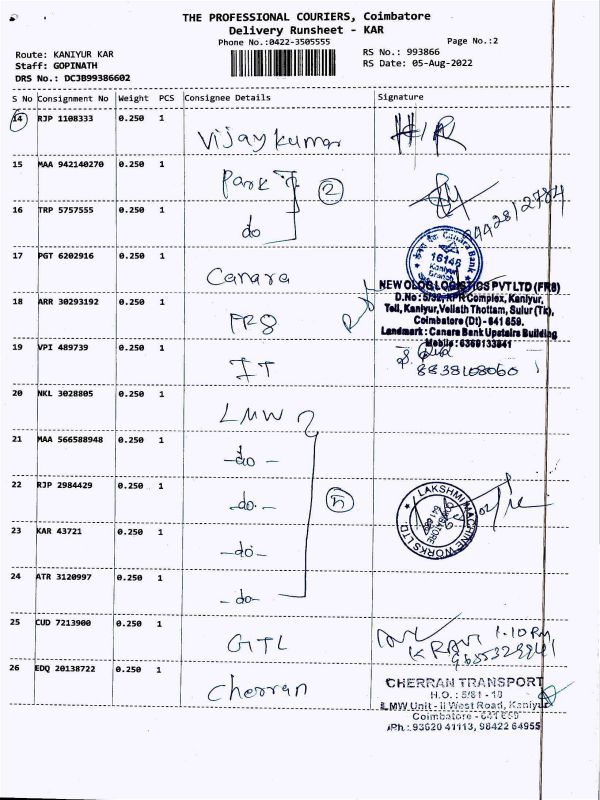 THE PROFESSIONAL COURIERS, Coimbatore
Delivery Runsheet - KAR
Phone No.:0422-3505555
Page No.:2
Route: KANIYUR KAR
RS No.: 993866
Staff: GOPINATH
RS Date: 05-Aug-2022
DRS No.: DCJB99386602
S No Consignment No Weight PCS Consignee Details Signature
14 RJP 1108333 0.250 1 Vijaykumar
15 MAA 942140270 0.250 1 Park 2
16 TRP 5757555 0.250 1 do
17 PGT 6202916 0.250 1 Canara
Canara Bank
16146
Kaniyur
Branch
18 ARR 30293192 0.250 1 FR8
NEW OLOG LOGISTICS PVT LTD (FR8)
D.No : 5/32, KPR Complex, Kaniyur,
Tell, Kaniyur, Vellath Thottam, Sulur (Tk),
Coimbatore (Dt) - 641 659.
Landmark : Canara Bank Upstairs Building
Mobile : 6369133841
19 VPI 489739 0.250 1 IT
8838108060
20 NKL 3028805 0.250 1 LMW
21 MAA 566588948 0.250 1 -do-
22 RJP 2984429 0.250 1 -do- 5
LAKSHMI MACHINE WORKS LTD
COIMBATORE
23 KAR 43721 0.250 1 -do-
24 ATR 3120997 0.250 1 -do-
25 CUD 7213900 0.250 1 GTL
1.10 PM
K RAVI
26 EDQ 20138722 0.250 1 Cherran
CHERRAN TRANSPORT
H.O. : 5/81 - 18
LMW Unit - II West Road, Kaniyur
Coimbatore - 641 659
Ph : 93620 41113, 98422 64955